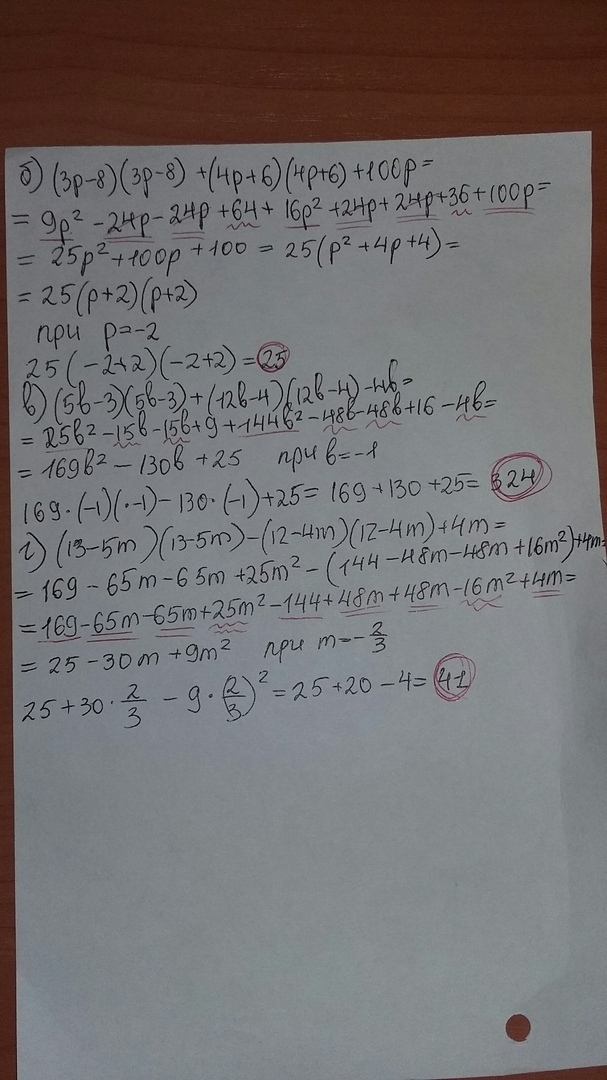 б) (3p-8)(3p-8) +(4p+6)(4p+6)+100p=
= 9p² - 24p - 24p + 64 + 16p² + 24p + 24p + 36 + 100p =
= 25p² + 100p + 100 = 25(p² + 4p + 4) =
= 25(p+2)(p+2)
при p=-2
25(-2+2)(-2+2) = 25
в) (5b-3)(5b-3)+(12b-4)(12b-4)-4b=
= 25b² - 15b - 15b + 9 + 144b² - 48b - 48b + 16 - 4b =
= 169b² - 130b + 25 при b=-1
169·(-1)(·-1) - 130·(-1)+25 = 169+130+25 = 324
г) (13-5m)(13-5m)-(12-4m)(12-4m)+4m=
= 169 - 65m - 65m + 25m² - (144 - 48m - 48m + 16m²)+4m=
= 169 - 65m - 65m + 25m² - 144 + 48m + 48m - 16m² + 4m =
= 25 - 30m + 9m² при m=-2/3
25+30·2/3 - 9·2/3)² = 25+20-4 = 41